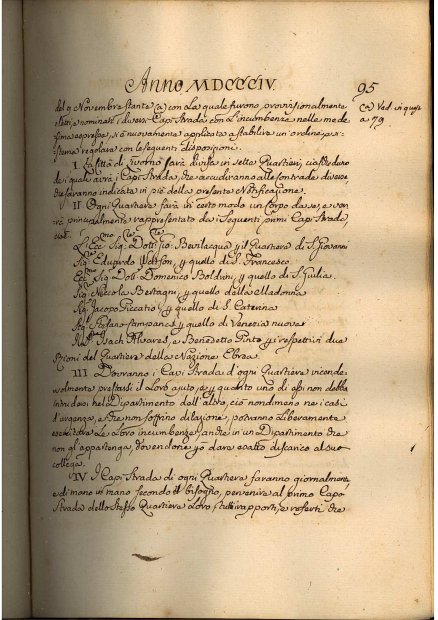 Anno MDCCCIV.
95
del 9 Novembre stante (a) con La quale furono provvisionalmente
eletti, e nominati i diversi Capi Strada, con L'incumbenze nelle mede-
sima espresse, si è nuovamente applicato a stabilire un ordine, e si-
stema regolare con le seguenti disposizioni.
(a) Ved. in quest
a 79
I. La Città di Livorno sarà divisa in sette Quartieri, ciascheduno
de i quali avrà i Capi Strada, che accudiranno alle Contrade diverse,
che saranno indicate in piè della presente Notificazione.
II Ogni Quartiere farà in certo modo un Corpo da se, e ver-
rà principalmente rappresentato da i seguenti primi Capi Strade,
L'Ecc. Sig. Dott. Gio: Bevilacqua p. il Quartiere di S. Giovanni
Sig. Eduardo Wattson, p. quello di S. Francesco
Ecc. Sig. Dott. Domenico Balduini, p. quello di S. Giulia.
Sig. Niccola Bertagni, p. quello della Madonna
Sig. Jacopo Riccatri, p. quello di S. Caterina
Sig. Stefano Campana, p. quello di Venezia nuova
Isach Alvares, e Benedetto Pinto p. i respettivi due
Rioni del Quartiere della Nazione Ebrea.
III Dovranno i Capi Strada d'ogni Quartiere vicende-
volmente prestarsi il Loro ajuto, e p. quanto uno di essi non debba
intrudersi nel Dipartimento dell'altro, ciò nondimeno ne i casi
d'urgenza, e che non soffrino dilazione, potranno Liberamente
esercitare Le Loro incumbenze, anche in un Dipartimento che
non gli appartenga, dovendone p. dare esatto discarico al suo
collega.
IV I Capi Strada di ogni Quartiere faranno giornalmente,
e di mano in mano secondo il bisogno, pervenire al primo Capo
Strada dello stesso Quartiere Loro, tutti i rapporti, e referti che